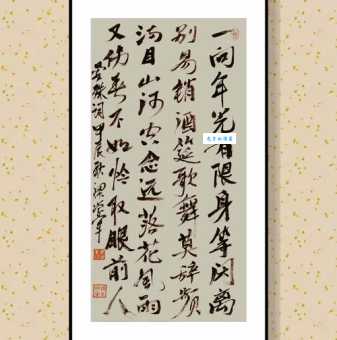 一向年光有限身等闲离
别易銷酒筵歌舞莫辞頻
满目山河空念远落花風雨
又伤春不如怜取眼前人
晏殊词甲辰秋